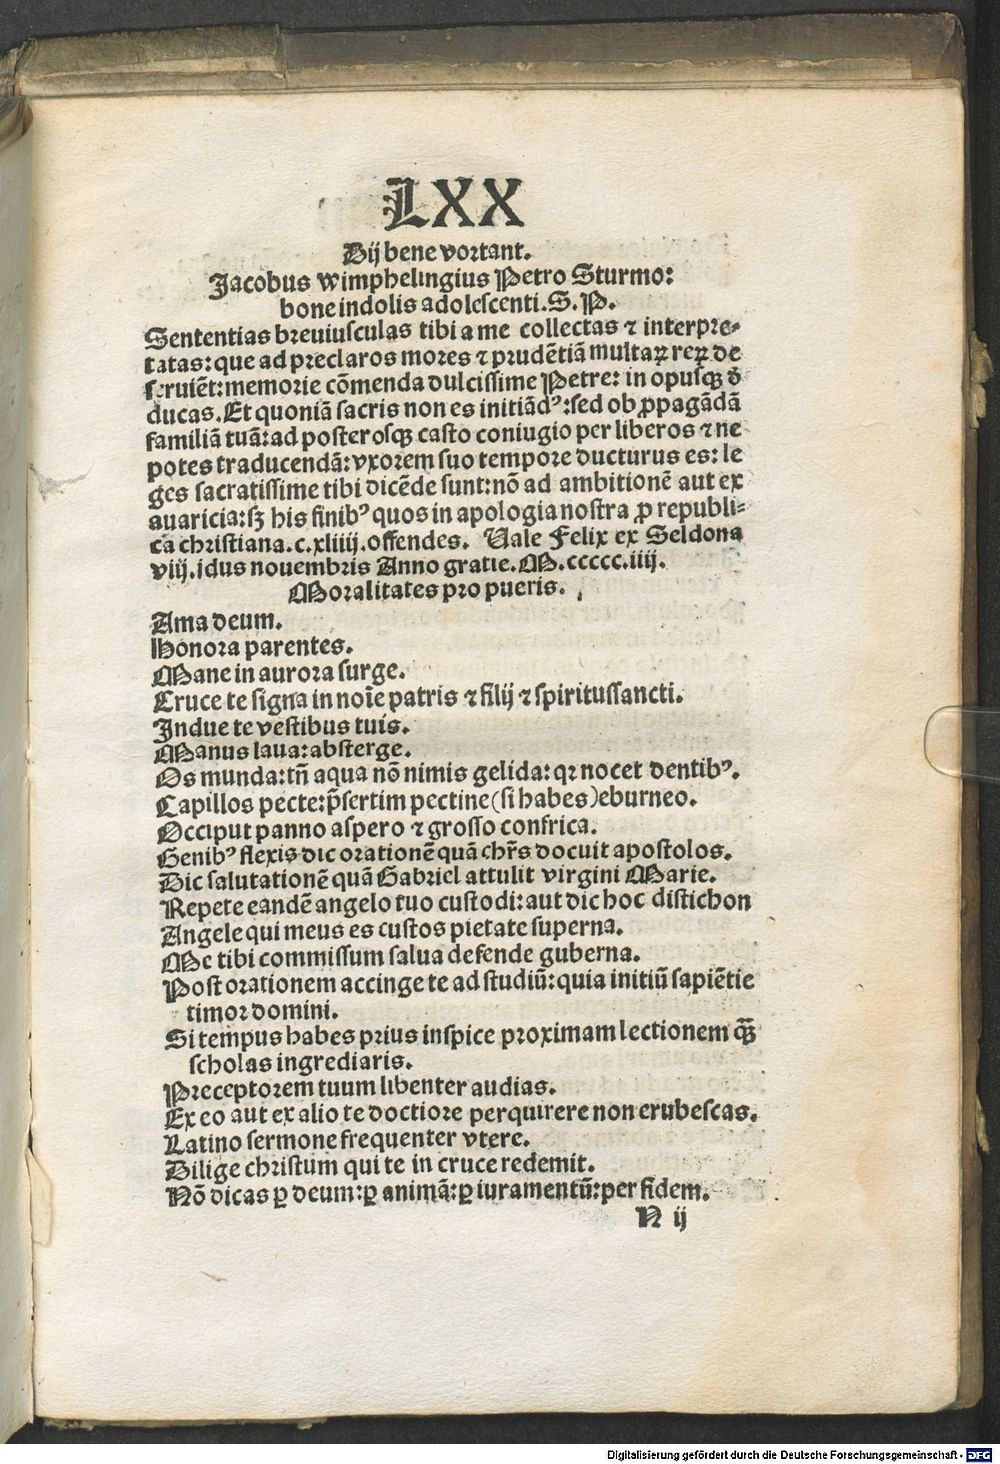 LXX
Dij bene vortant.
Jacobus wimphelingius Petro Sturmo:
bone indolis adolescenti. S. P.
Sententias breuiusculas tibi a me collectas ⁊ interpre-
tatas: que ad preclaros mores ⁊ prudētiā multaꝝ reꝝ de
seruiēt: memorie cōmenda dulcissime Petre: in opusqꝫ
ducas. Et quoniā sacris non es initiādꝰ: sed ob ꝓpagādā
familiā tuā: ad posterosqꝫ casto coniugio per liberos ⁊ ne
potes traducendā: vxorem suo tempore ducturus es: le
ges sacratissime tibi dicēde sunt: nō ad ambitionē aut ex
auaricia: sꝫ his finibꝰ quos in apologia nostra ꝓ republi-
ca christiana. c. xliiij. offendes. Vale Felix ex Seldona
viij. idus nouembris Anno gratie. M. ccccc. iiij.
Moralitates pro pueris.
Ama deum.
Honora parentes.
Mane in aurora surge.
Cruce te signa in noīe patris ⁊ filij ⁊ spiritussancti.
Indue te vestibus tuis.
Manus laua: absterge.
Os munda: tn̄ aqua nō nimis gelida: qꝛ nocet dentibꝰ.
Capillos pecte: p̄sertim pectine (si habes) eburneo.
Occiput panno aspero ⁊ grosso confrica.
Genibꝰ flexis dic orationē quā chr̄s docuit apostolos.
Dic salutationē quā Gabriel attulit virgini Marie.
Repete eandē angelo tuo custodi: aut dic hoc distichon
Angele qui meus es custos pietate superna.
Me tibi commissum salua defende guberna.
Post orationem accinge te ad studiū: quia initiū sapiētie
timor domini.
Si tempus habes prius inspice proximam lectionem qꝫ̄
scholas ingrediaris.
Preceptorem tuum libenter audias.
Ex eo aut ex alio te doctiore perquirere non erubescas.
Latino sermone frequenter vtere.
Dilige christum qui te in cruce redemit.
Nō dicas ꝑ deum: ꝑ animā: ꝑ iuramentū: per fidem.
N ij
Digitalisierung gefördert durch die Deutsche Forschungsgemeinschaft - DFG